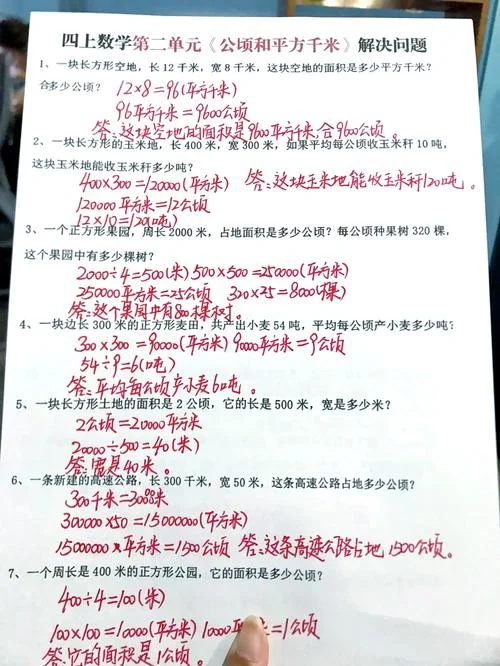 四上数学第二单元《公顷和平方千米》解决问题
1、一块长方形空地，长12千米，宽8千米，这块空地的面积是多少平方千米？
合多少公顷？ 12×8=96(平方千米)
96平方千米=9600公顷
答：这块空地的面积是9600平方千米，合9600公顷。
2、一块长方形的玉米地，长400米，宽300米，如果平均每公顷收玉米秆10吨，
这块玉米地能收玉米秆多少吨？
400×300=120000(平方米) 答：这块玉米地能收玉米秆120吨。
120000平方米=12公顷
12×10=120(吨)
3、一个正方形果园，周长2000米，占地面积是多少公顷？每公顷种果树320棵，
这个果园中有多少棵树？
2000÷4=500(米) 500×500=250000(平方米)
250000平方米=25公顷 320×25=8000(棵)
答：这个果园中有800棵树。
4、一块边长300米的正方形麦田，共产出小麦54吨，平均每公顷产小麦多少吨？
300×300=90000(平方米) 90000平方米=9公顷
54÷9=6(吨)
答：平均每公顷产小麦6吨。
5、一块长方形土地的面积是2公顷，它的长是500米，宽是多少米？
2公顷=20000平方米
20000÷500=40(米)
答：宽是40米。
6、一条新建的高速公路，长300千米，宽50米，这条高速公路占地多少公顷？
300千米=300000米
300000×50=15000000(平方米)
15000000平方米=1500公顷 答：这条高速公路占地1500公顷。
7、一个周长是400米的正方形公园，它的面积是多少公顷？
400÷4=100(米)
100×100=10000(平方米) 10000平 =1公顷
答：它的面积是1公顷。